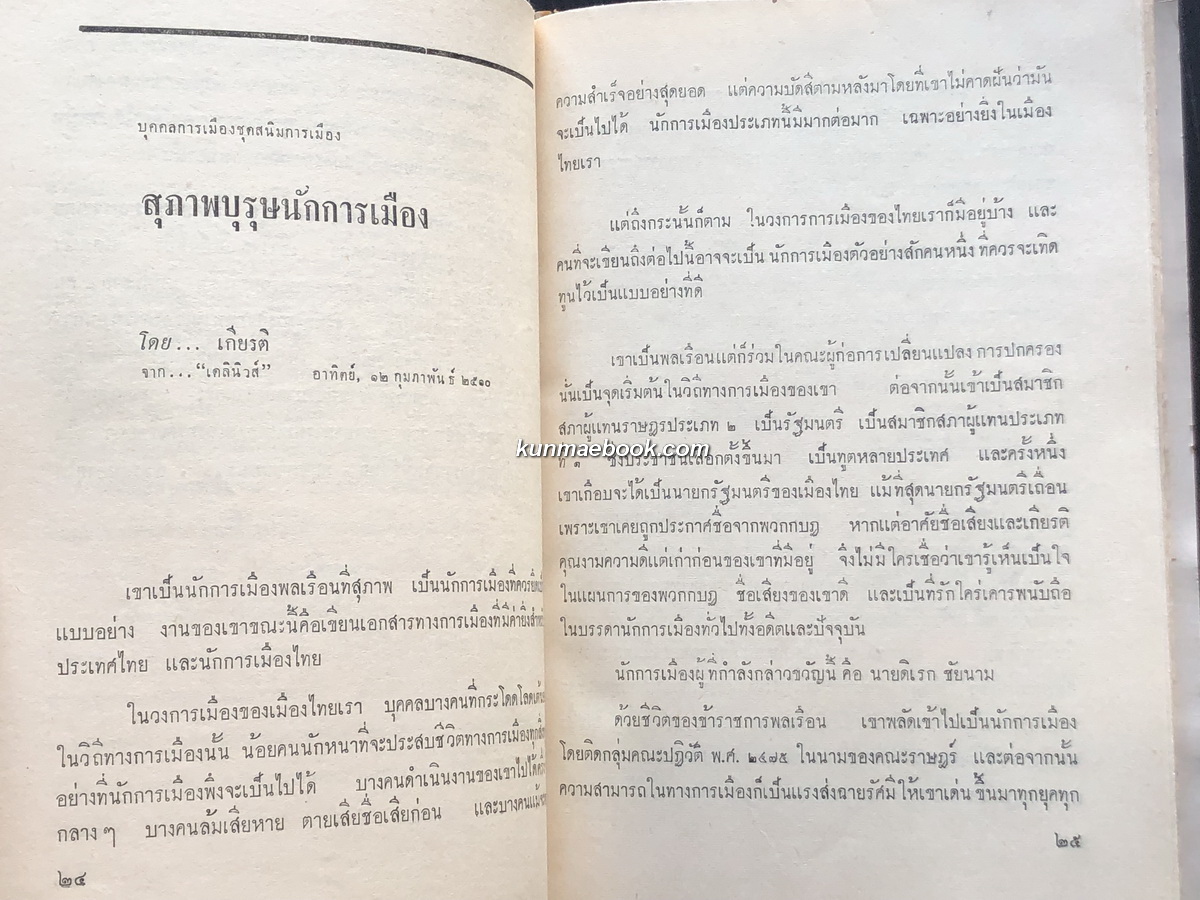 บุคคลการเมืองชุดสนิมการเมือง
สุภาพบุรุษนักการเมือง
โดย... เกียรติ
จาก..."เดลินิวส์" อาทิตย์, ๑๒ กุมภาพันธ์ ๒๕๑๐
เขาเป็นนักการเมืองพลเรือนที่สุภาพ เป็นนักการเมืองที่ควร
แบบอย่าง งานของเขาขณะนี้คือเขียนเอกสารทางการเมืองที่มีค่ายิ่ง
ประเทศไทย และนักการเมืองไทย
ในวงการเมืองของเมืองไทยเรา บุคคลบางคนที่กระโดดโลดเต้น
ในวิถีทางการเมืองนั้น น้อยคนนักหนาที่จะประสบชีวิตทางการเมือง
อย่างที่นักการเมืองพึงจะเป็นไปได้ บางคนดำเนินงานของเขาไปได้
กลาง ๆ บางคนล้มเสียหาย ตายเสียชื่อเสียก่อน และบางคน
๒๔
ความสำเร็จอย่างสุดยอด แต่ความบัดสีตามหลังมาโดยที่เขาไม่คาดฝันว่ามัน
จะเป็นไปได้ นักการเมืองประเภทนี้มีมากต่อมาก เฉพาะอย่างยิ่งในเมือง
ไทยเรา
แต่ถึงกระนั้นก็ตาม ในวงการการเมืองของไทยเราก็มีอยู่บ้าง และ
คนที่จะเขียนถึงต่อไปนี้อาจจะเป็น นักการเมืองตัวอย่างสักคนหนึ่ง ที่ควรจะเทิด
ทูนไว้เป็นแบบอย่างที่ดี
เขาเป็นพลเรือนแต่ก็ร่วมในคณะผู้ก่อการเปลี่ยนแปลง การปกครอง
นั่นเป็นจุดเริ่มต้นในวิถีทางการเมืองของเขา ต่อจากนั้นเข้าเป็นสมาชิก
สภาผู้แทนราษฎรประเภท ๒ เป็นรัฐมนตรี เป็นสมาชิกสภาผู้แทนประเภท
ที่ ๑ ซึ่งประชาชนเลือกตั้งขึ้นมา เป็นทูตหลายประเทศ และครั้งหนึ่ง
kunmaebook.com
เขาเกือบจะได้เป็นนายกรัฐมนตรีของเมืองไทย แม้ที่สุดนายกรัฐมนตรีเถื่อน
เพราะเขาเคยถูกประกาศชื่อจากพวกกบฏ หากแต่อาศัยชื่อเสียงและเกียรติ
คุณงามความดีแต่เก่าก่อนของเขาที่มีอยู่ จึงไม่มีใครเชื่อว่าเขารู้เห็นเป็นใจ
ในแผนการของพวกกบฏ ชื่อเสียงของเขาดี และเป็นที่รักใคร่เคารพนับถือ
ในบรรดานักการเมืองทั่วไปทั้งอดีตและปัจจุบัน
นักการเมืองผู้ที่กำลังกล่าวขวัญนี้ คือ นายดิเรก ชัยนาม
ด้วยชีวิตของข้าราชการพลเรือน เขาพลัดเข้าไปเป็นนักการเมือง
โดยติดกลุ่มคณะปฏิวัติ พ.ศ. ๒๔๗๕ ในนามของคณะราษฎร์ และต่อจากนั้น
ความสามารถในทางการเมืองก็เป็นแรงส่งฉายรัศมีให้เขาเด่น ขึ้นมาทุกยุคทุก
๒๕